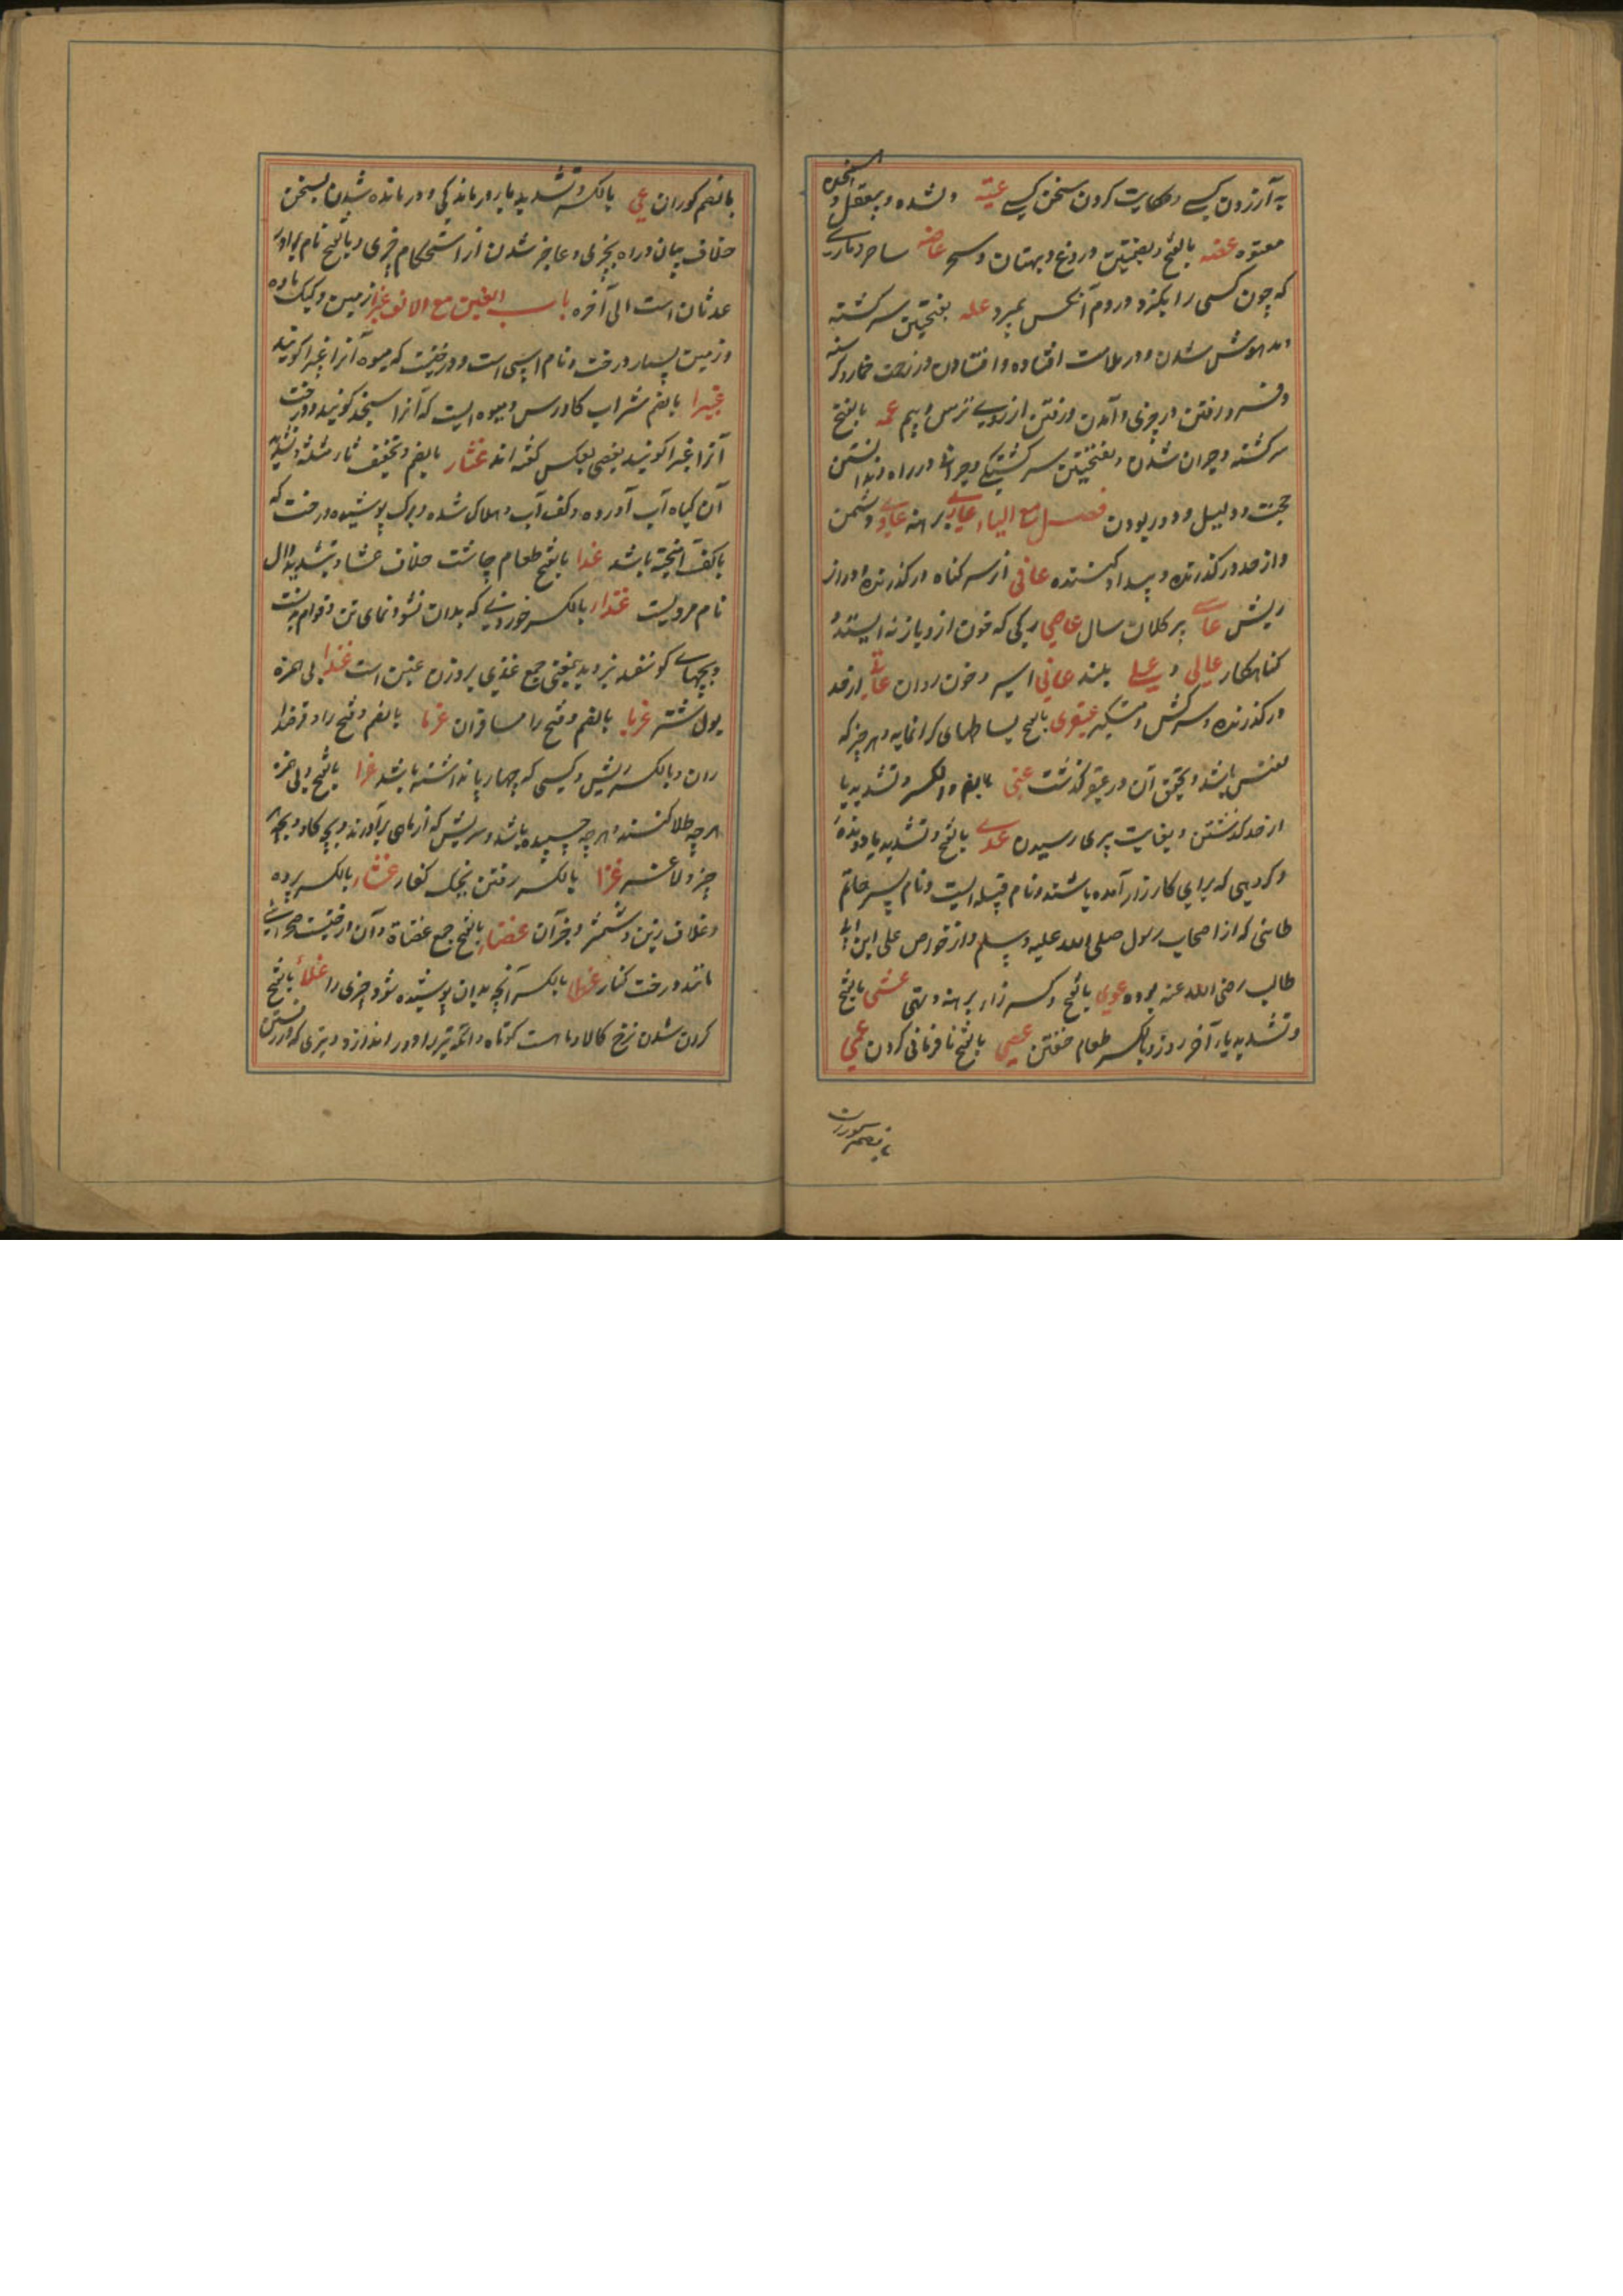 به آرزدن کسی و حکایت کردن سخن کسی عته ولشده و بیعقل و
معتوه عضه بالفتح و بفتحتین دروغ و بهتان و سحر عاضه ساحر و ماری
که چون کسی را بگزد در دم آنکس بمیرد عله بفتحتین سرگشته
و مدهوش شدن و در ملامت افتاده و افتادن در زحمت خمار و گرسنه
و فرو رفتن در چیزی و آمدن و رفتن از روی ترس و بیم عمه بالفتح
سرگشته و حیران شدن و بفتحتین سرگشتگی و حیرانی در راه ندانستن
حجت و دلیل و دور بودن فصل مع الیاء عاری برهنه عادی دشمن
و از حد در گذرنده و بیداد کننده عافی از سر گناه در گذرنده و دراز
ریش عاسی پیر کلان سال عاصی رگی که خون از و باز نه ایستد و
گناهکار عالی و علی بلند عانی اسیر و خون روان عاتی از حد
در گذرنده و سرکش و متکبر عبقری بالفتح بساطهای گرانمایه و هر چیز که
نفیس باشد و تحقیق آن در عبقر گذشت عتی بالضم والکسر و تشدید یا
از حد گذشتن و بغایت پیری رسیدن عدی بالفتح و تشدید یا دونده
و گروهی که برای کارزار آمده باشند و نام قبیله ایست و نام پسر حاتم
طائی که از اصحاب رسول صلی الله علیه و سلم و از خواص علی ابن ابی
طالب رضی الله عنه بوده عری بالفتح و کسر را برهنه و تهی عشی بالفتح
و تشدید یا آخر روز و بالکسر طعام خفتن عصی بالفتح نافرمانی کردن عمی
بالضم کوران عی بالکسر و تشدید یا در ماندگی و در مانده شدن بسخن
خلاف بیان و راه بچیزی و عاجز شدن از استحکام چیزی و بالفتح نام برادر
عدنان است الی آخره باب الغین مع الالف غبرا زمین و کبک ماده
و زمین بسیار درخت و نام اسپی است و درختیست که میوه آنرا غبیرا گویند
غبیرا بالضم شراب گاورس و میوه ایست که آنرا سنجد گویند و درخت
آنرا غبرا گویند بعضی بعکس گفته اند غثا بالضم و تخفیف ثا مثلثه و تشدید
آن گیاه آب آورده و کف آب و هلاک شده و برگ پوشیده درخت که
با کف آمیخته باشد غدا بالفتح طعام چاشت خلاف عشا و بتشدید دال
نام مردیست غذا بالکسر خوردنی که بدان نشو و نمای تن و قوام بدنست
و بچهای گوسفند نزدیک بعضی جمع غذی بر وزن غنی است غذا بی همزه
بول شتر غربا بالضم و فتح را مسافران غرما بالضم و فتح را وقرضدا
ران و بالکسر ریش و کیسی که چهارپا نداشته باشد غرا بالفتح و بی همزه
هرچه طلا کنند و هرچه چسپیده باشد و سریش که از ماهی برآورند و بچه گاو و بچه هر
چیز ولاغر غزا بالکسر رفتن بجنگ کفار غشاء بالکسر پرده
و غلاف زین و شمشیر و جز آن غضاء بالفتح جمع غضاة و آن درختیست صحرائی
مانند درخت کنار غطا بالکسر آنچه بدان پوشیده شود چیزی را غلا بالفتح
گران شدن نرخ کالا و ماهست کوتاه و آنکه تیر را دور اندازد و تیری که دور رفتن